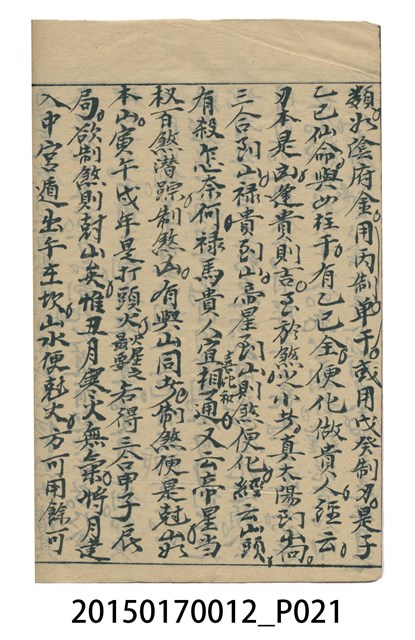 類如陰府金用丙制單干或用戊癸制刃是子
乙巳仙命與四柱干有乙巳全便化做貴人經云
刃本是凶逢貴則吉至於煞之小者真太陽到山尚
三合到山祿貴到山帝星到山則煞便化經云山頭
有殺怎奈何祿馬貴人宜相通又云帝星當
權百煞潜踪制煞山有與山同者制煞便是尅如
本山寅午戌年是打頭火火星之最要若得三合甲子辰
局欲制煞則尅山矣惟丑月寒火無氣將月建
入中宮遁出午在坎山水便尅火方可用餘可
喜比和
20150170012_P021